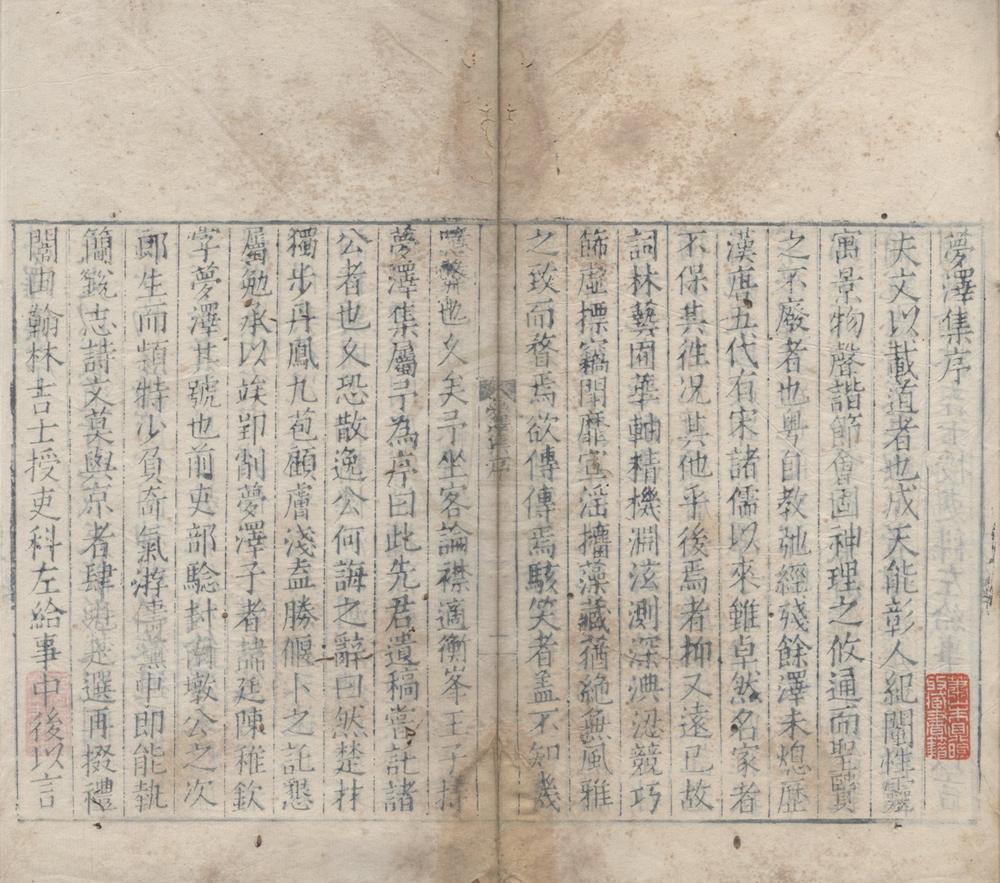 夢澤集序
夫文以載道者也成天能彰人紀闡性靈
寓景物聲諧節會固神理之攸通而聖賢
之不廢者也粤自教弛經殘餘澤未熄歷
漢唐五代有宋諸儒以來雖卓然名家者
不保其徃况其他乎後焉者抑又遠已故
詞林藝囿華軸精機淵泫測深淟涊競巧
飾虛摽竊開靡宣滛擄藻藏猶絶無風雅
之玫而瞀焉欲傳傳焉駭笑者盖不知幾
也久矣予坐客論襟適衡峯王子持
夢澤集屬予為序曰此先君遺稿嘗託諸
公者也久恐散逸公何誨之辭曰然楚材
獨歩丹鳳九苞顧膚淺盍勝偃卜之託懇
屬勉承以竢郢削夢澤子者諱廷陳稚欽
字夢澤其號也前吏部騐封啇墩公之次
郎生而頴特少負奇氣游中即能執
簡銳志詩文莫與京者肆選再掇禮
闈由翰林吉士授吏科左給事中後以言